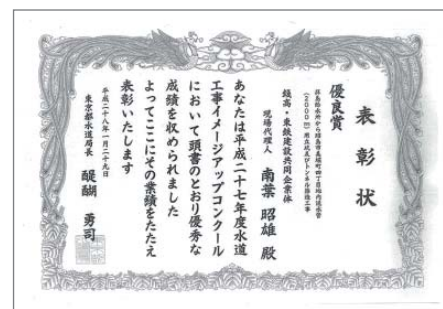 表彰状
優良賞
(2000㎜)用立坑及びトンネル築造工事
銭高・東鉄建設共同企業体
現場代理人 南葉 昭雄 殿
あなたは平成二十七年度水道
工事イメージアップコンクール
において頭書のとおり優秀な
成績を収められました
よってここにその業績をたたえ
表彰いたします
平成二十八年一月二十九日
東京都水道局長 醍醐 勇司